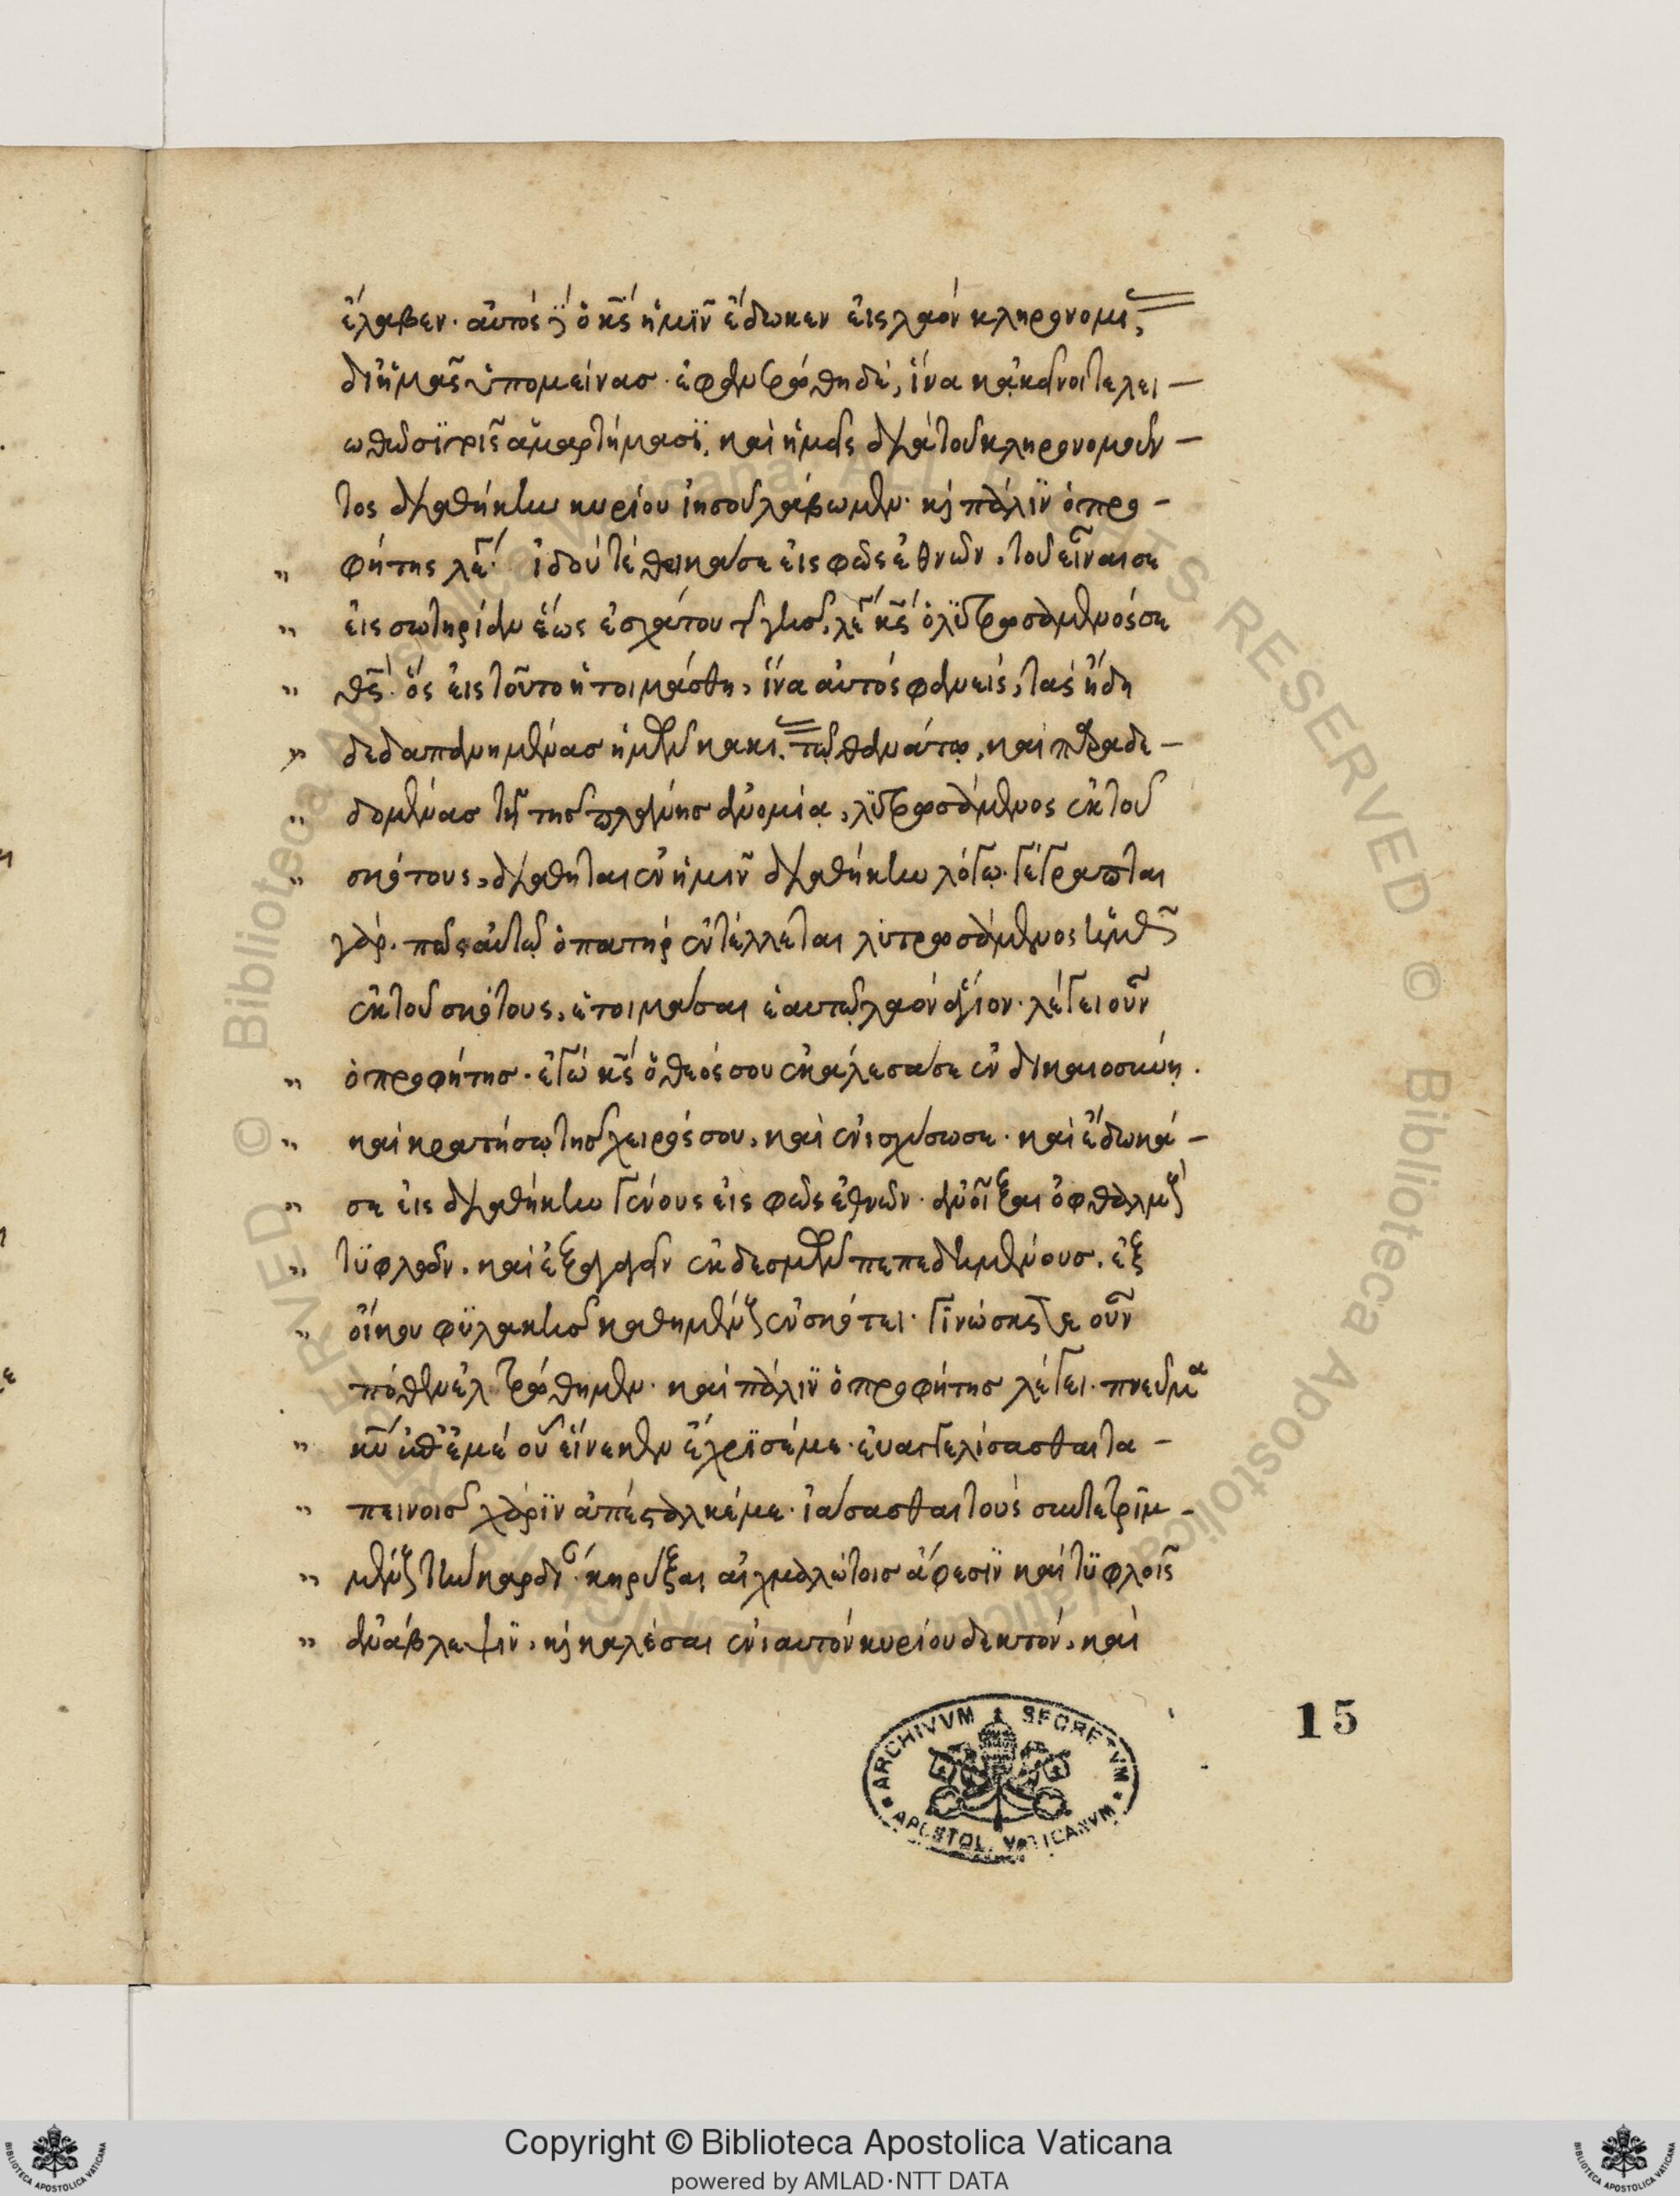 ἔλαβεν· αὐτός δ ὁ κς ἡμῖν ἔδωκεν εἰς λαὸν κληρονομί,
δι ἡμᾶς ὑπομείνας· ἐφανερώθη δέ, ἵνα κἀκεῖνοι τελει-
ωθῶσϊ τοῖς ἁμαρτήμασϊ, καὶ ἡμεῖς διὰ τοῦ κληρονομοῦν-
τος διαθήκην κυρίου ἰησοῦ λάβωμεν· κ πάλϊν ὁ προ-
" φήτης λέγ· ἰδού τέθεικά σε εἰς φῶς ἐθνῶν, τοῦ εἶναι σε
" εἰς σωτηρίαν ἕως ἐσχάτου τ γῆς, λέγ κς ὁ λϋτρωσάμενός σε
" θς· ὃς εἰς τοῦτο ἡτοιμάσθη, ἵνα αὐτὸς φανείς, τὰς ἤδη
" δεδαπανημένας ἡμῶν καρδι τῷ θανάτῳ, καὶ παραδε-
" δομένας τῇ τῆς πλάνης ἀνομίᾳ, λϋτρωσάμενος ἐκ τοῦ
" σκότους, διαθῆται ἐν ἡμῖν διαθήκην λόγῳ· γέγραπται
γάρ· πῶς αὐτῷ ὁ πατὴρ ἐντέλλεται λυτρωσάμενος ἡμᾶς
ἐκ τοῦ σκότους, ἑτοιμάσαι ἑαυτῷ λαὸν ἅγιον· λέγει οὖν
" ὁ προφήτης· ἐγώ κς ὁ θεός σου ἐκάλεσά σε ἐν δικαιοσύνῃ.
" καὶ κρατήσω τῆς χειρός σου, καὶ ἐνισχύσω σε· καὶ ἔδωκά-
" σε εἰς διαθήκην γένους εἰς φῶς ἐθνῶν· ἀνοῖξαι ὀφθαλμοὺς
" τϋφλῶν, καὶ ἐξαγαγεῖν ἐκ δεσμῶν πεπεδημένους, ἐξ
" οἴκου φϋλακῆς καθημένους ἐν σκότει· γινώσκετε οὖν
πόθεν ἐλυτρώθημεν· καὶ πάλϊν ὁ προφήτης λέγει· πνεῦμα
" κυ ἐπ ἐμέ οὗ εἵνεκεν ἔχρϊσέ με· εὐαγγελίσασθαι τα-
" πεινοῖς χάρϊν ἀπέσταλκέ με· ἰάσασθαι τοὺς συντετριμ-
" μένους τὴν καρδι· κηρύξαι αἰχμαλώτοις ἄφεσϊν καὶ τϋφλοῖς
" ἀνάβλεψϊν, κ καλέσαι ἐνιαυτὸν κυρίου δεκτόν, καὶ
15
ARCHIVVM SECRETVM
APOSTOL. VATICANVM
© Biblioteca Apostolica Vaticana ALL RIGHTS RESERVED
Copyright © Biblioteca Apostolica Vaticana
powered by AMLAD·NTT DATA